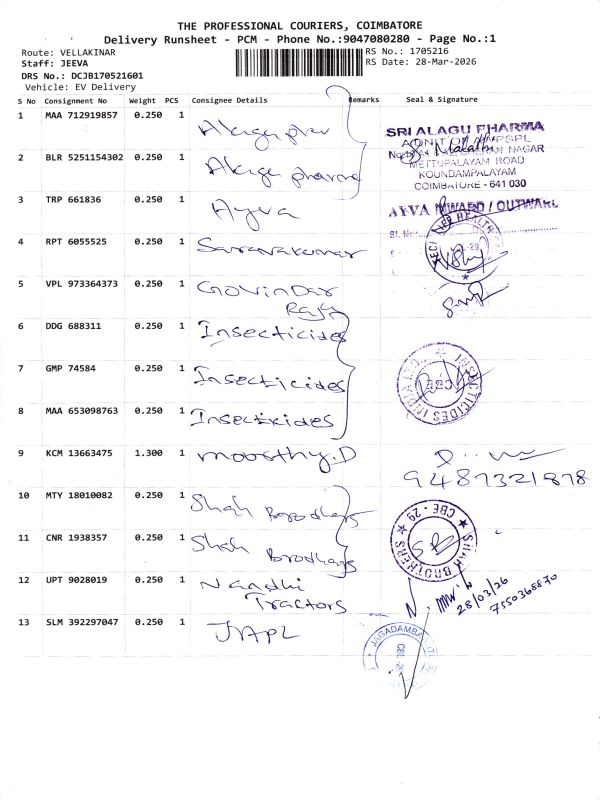 THE PROFESSIONAL COURIERS, COIMBATORE
Delivery Runsheet - PCM - Phone No.:9047080280 - Page No.:1
Route: VELLAKINAR
RS No.: 1705216
Staff: JEEVA
RS Date: 28-Mar-2026
DRS No.: DCJB170521601
Vehicle: EV Delivery
S No Consignment No Weight PCS Consignee Details Remarks Seal & Signature
1 MAA 712919857 0.250 1
SRI ALAGU PHARMA
2 BLR 5251154302 0.250 1 pharma
METTUPALAYAM ROAD
KOUNDAMPALAYAM
COIMBATORE - 641 030
3 TRP 661836 0.250 1 Ayva
AYVA INWARD / OUTWARD
4 RPT 6055525 0.250 1 Saravanakumar
5 VPL 973364373 0.250 1 Govindar
Raju
6 DDG 688311 0.250 1 Insecticides
7 GMP 74584 0.250 1 Insecticides
INSECTICIDES INDIA LTD., CBE
8 MAA 653098763 0.250 1 Insecticides
9 KCM 13663475 1.300 1 moorthy.D
9487321878
10 MTY 18010082 0.250 1 Shah Brothers
SHAH BROTHERS CBE - 29
11 CNR 1938357 0.250 1 Shah Brothers
12 UPT 9028019 0.250 1 Nandhi
Tractors
28/03/26
7550368870
13 SLM 392297047 0.250 1 JAPL